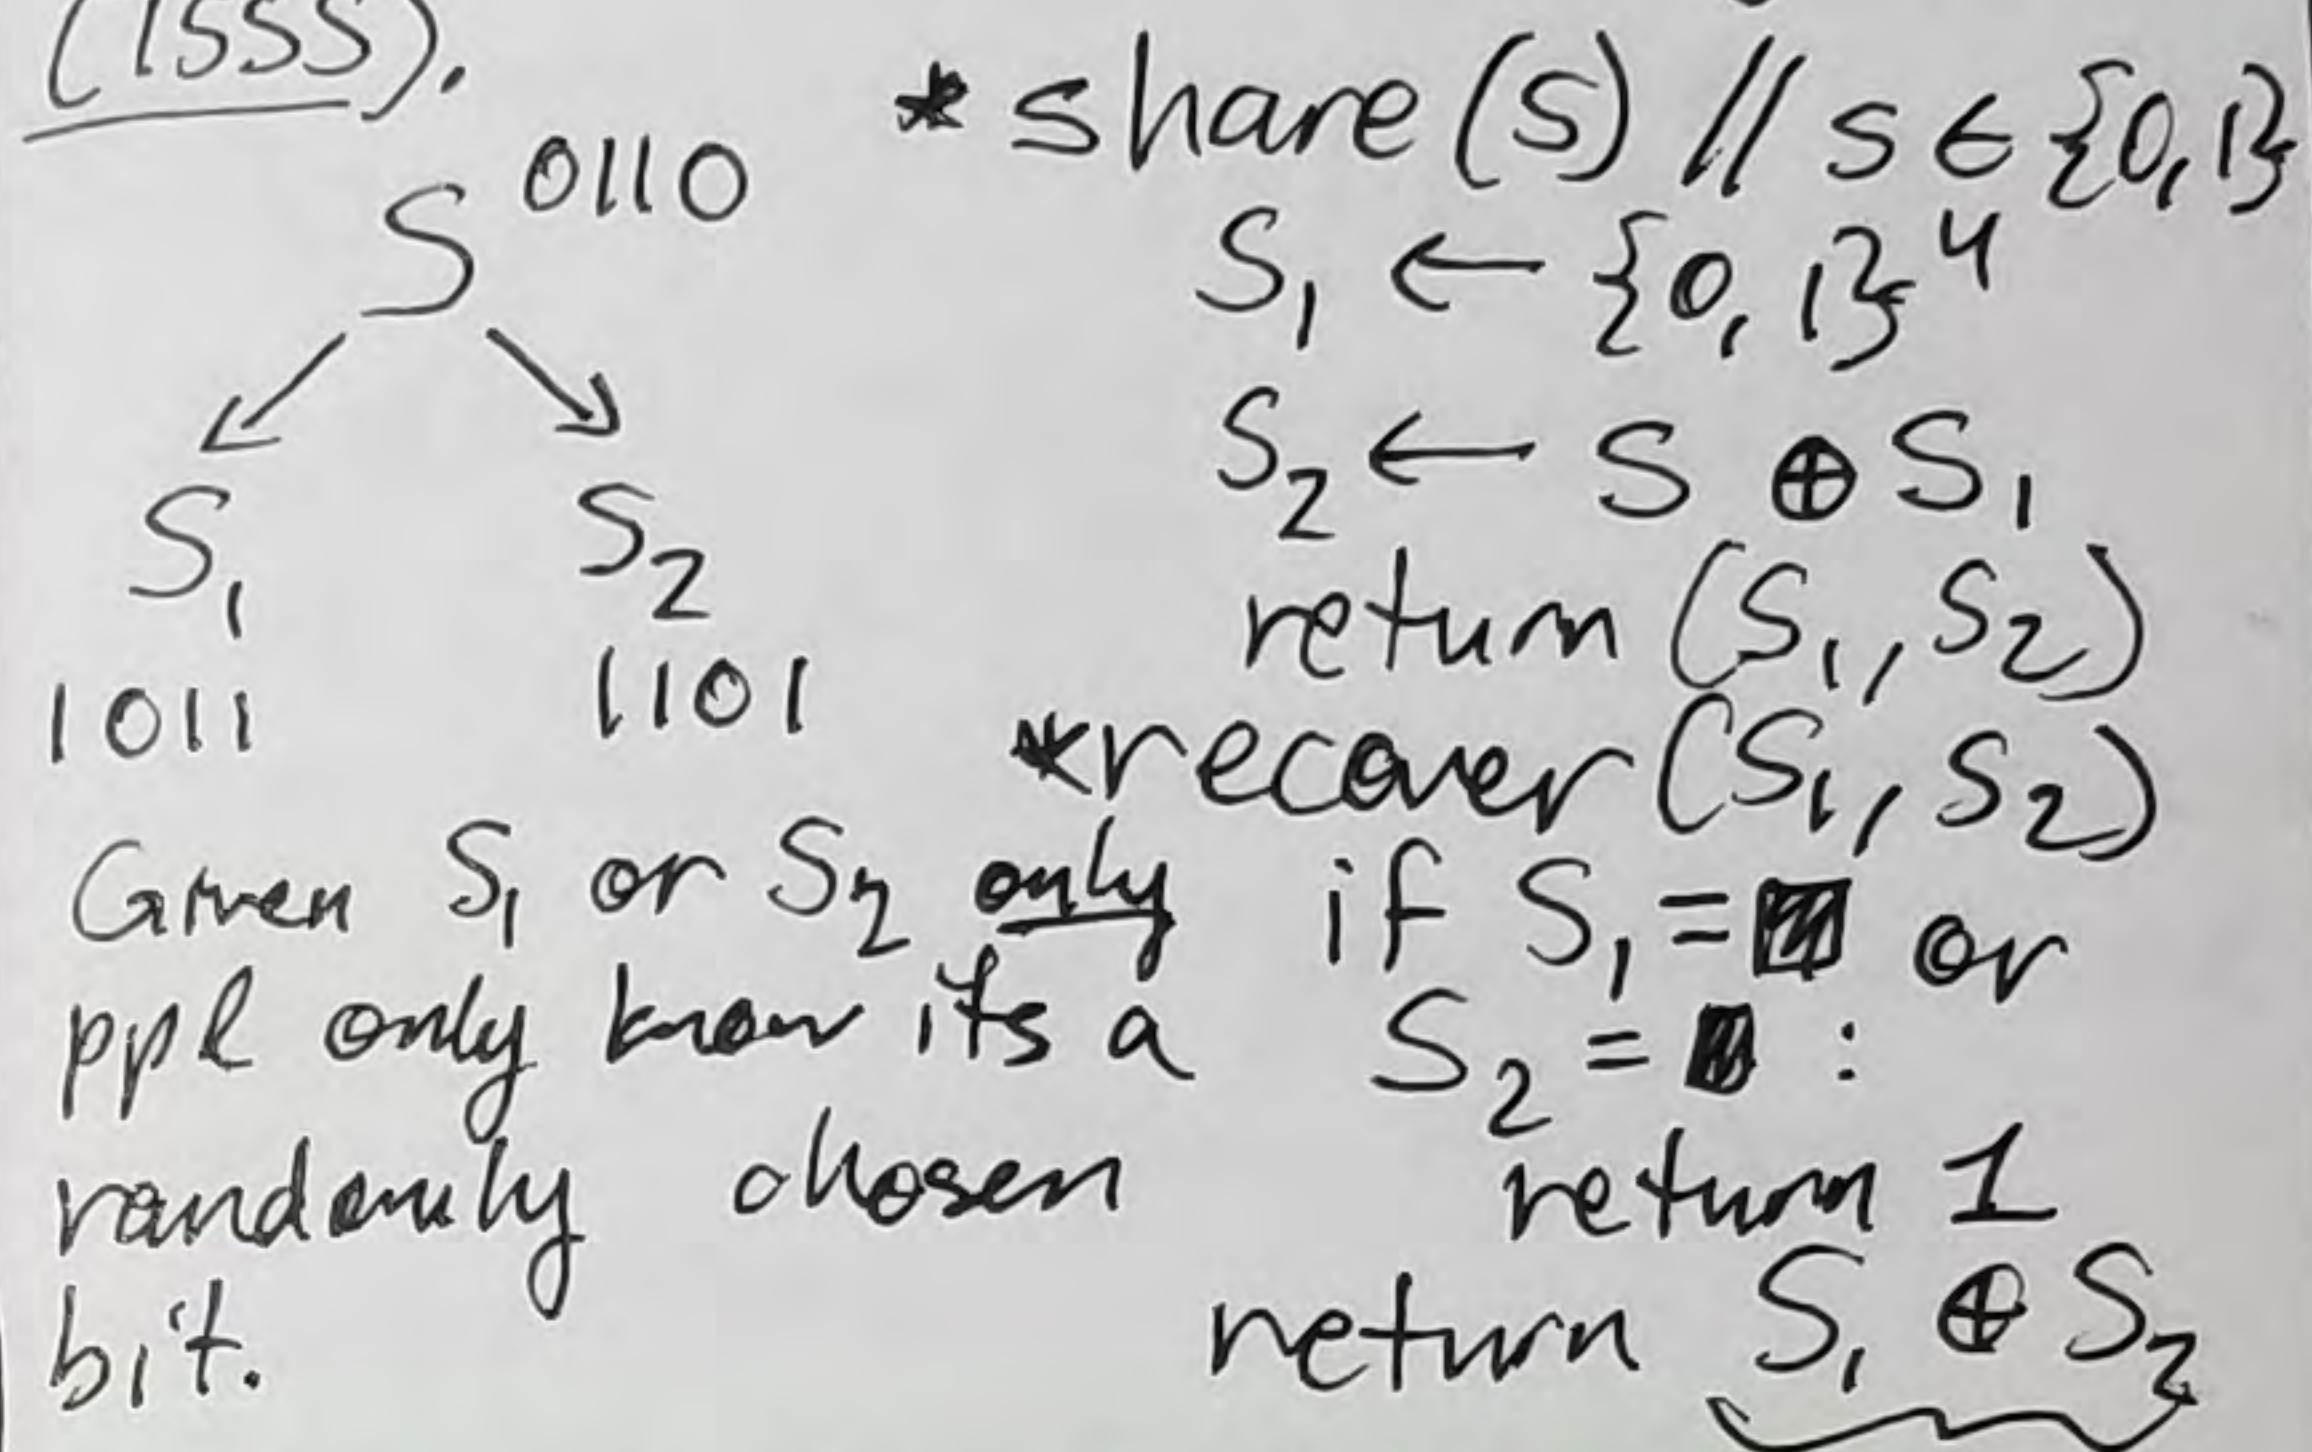 (1SSS).
S 0110
S₁ S₂
1011 1101
Given S₁ or S₂ only
ppl only know its a
randomly chosen
bit.
* share(S) // S ∈ {0,1}
S₁ ← {0,1}⁴
S₂ ← S ⊕ S₁
return (S₁, S₂)
* recover (S₁, S₂)
if S₁ = or
S₂ = :
return 1
return S₁ ⊕ S₂